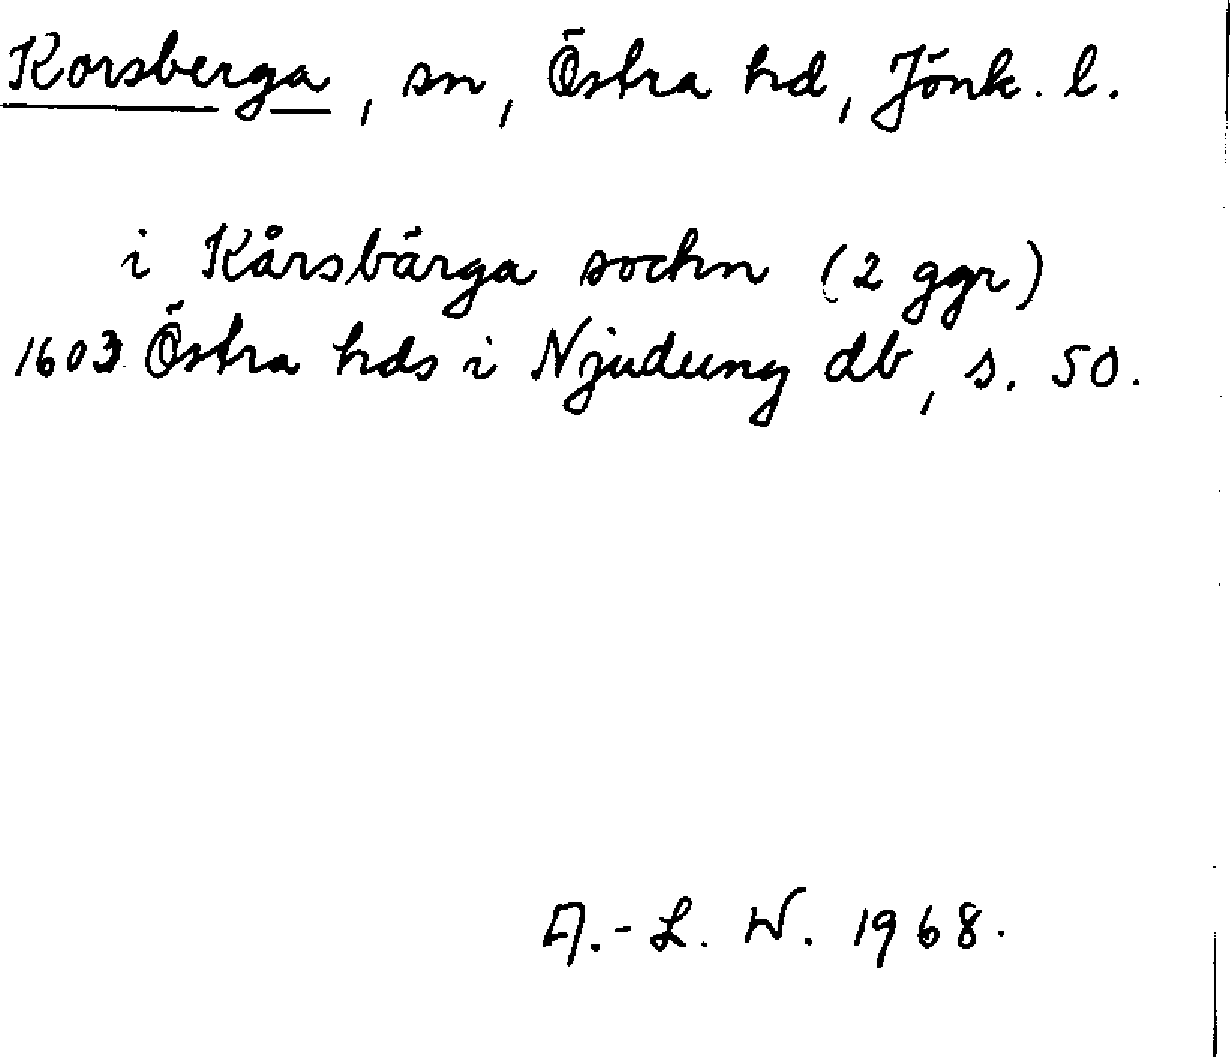 Korsberga, sn, Östra hd, Jönk. l.
i Kårsbärga sochn (2 ggr)
1603 Östra hds i Njudung db, s. 50.
A.-L. W. 1968.